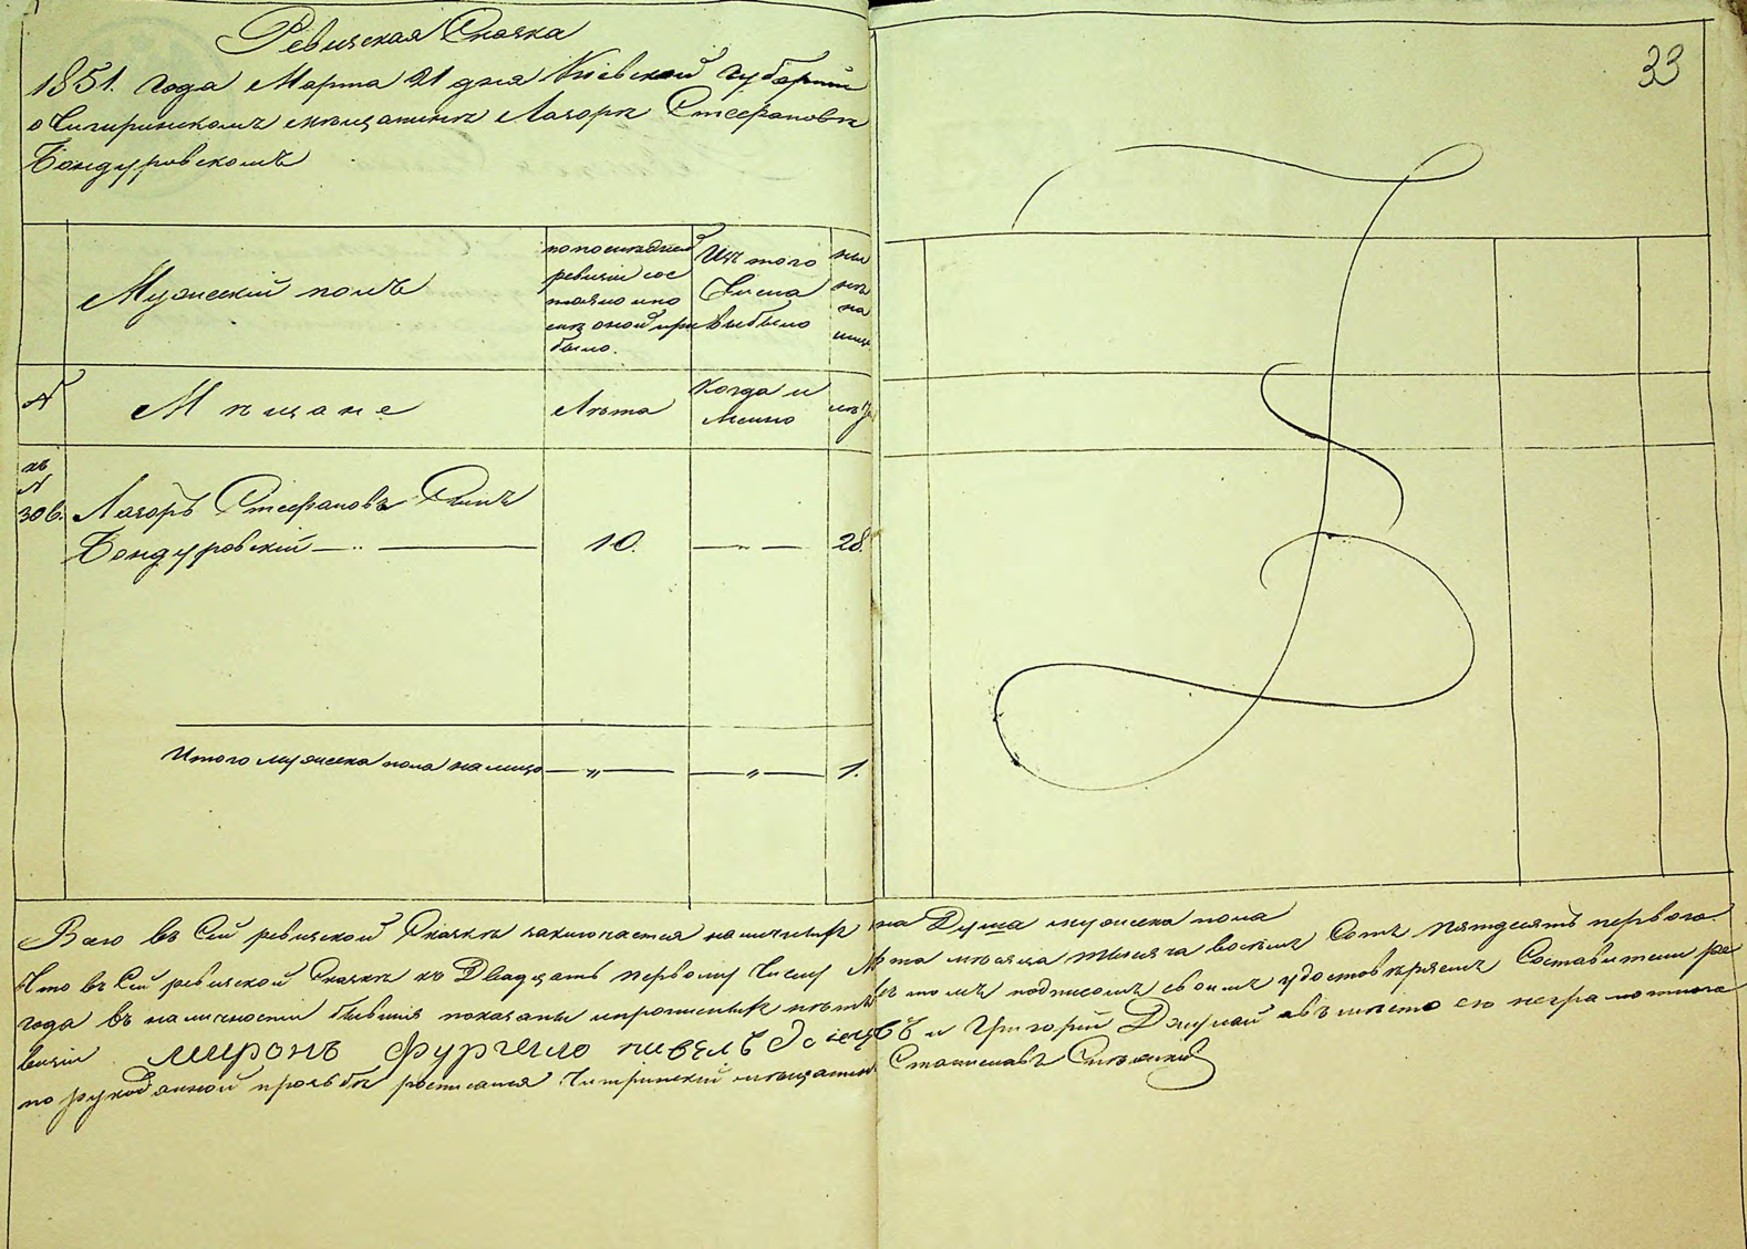 Ревизская Сказка
1851. года Марта 21 дня Кіевской губерніи
о Чигиринскомъ мѣщанинѣ Лазорѣ Стефановѣ
Бондуровскомъ
33
Мужескій полъ
по последней
ревизіи сос
тояло и по
слѣ оной при
было.
Изъ того
Числа
выбыло
ны
нѣ
на
лице
№
Мѣщане
Лѣта
Когда и
Менно
лѣта
къ
№
306. Лазоръ Стефановъ Сынъ
Бондуровскій — 10. — 28.
Итого мужеска пола на лицо — " — — " — 1.
Всего въ Сей ревизской Сказкѣ заключается наличныхъ на Душа мужеска пола
Что въ Сей ревизской Сказкѣ къ Двадцать первому Числу Марта мѣсяца тысяча восемь Сотъ пятдесятъ первого
года въ наличности бывшія показаны и прописныхъ нѣтъ въ томъ подписомъ своимъ удостовѣряемъ Составители ре
визіи Миронъ Фургало и Григорій а вмѣсто ею неграмотного
по рукоданной прозьбѣ росписался Чигринскій мѣщанинъ Станиславъ